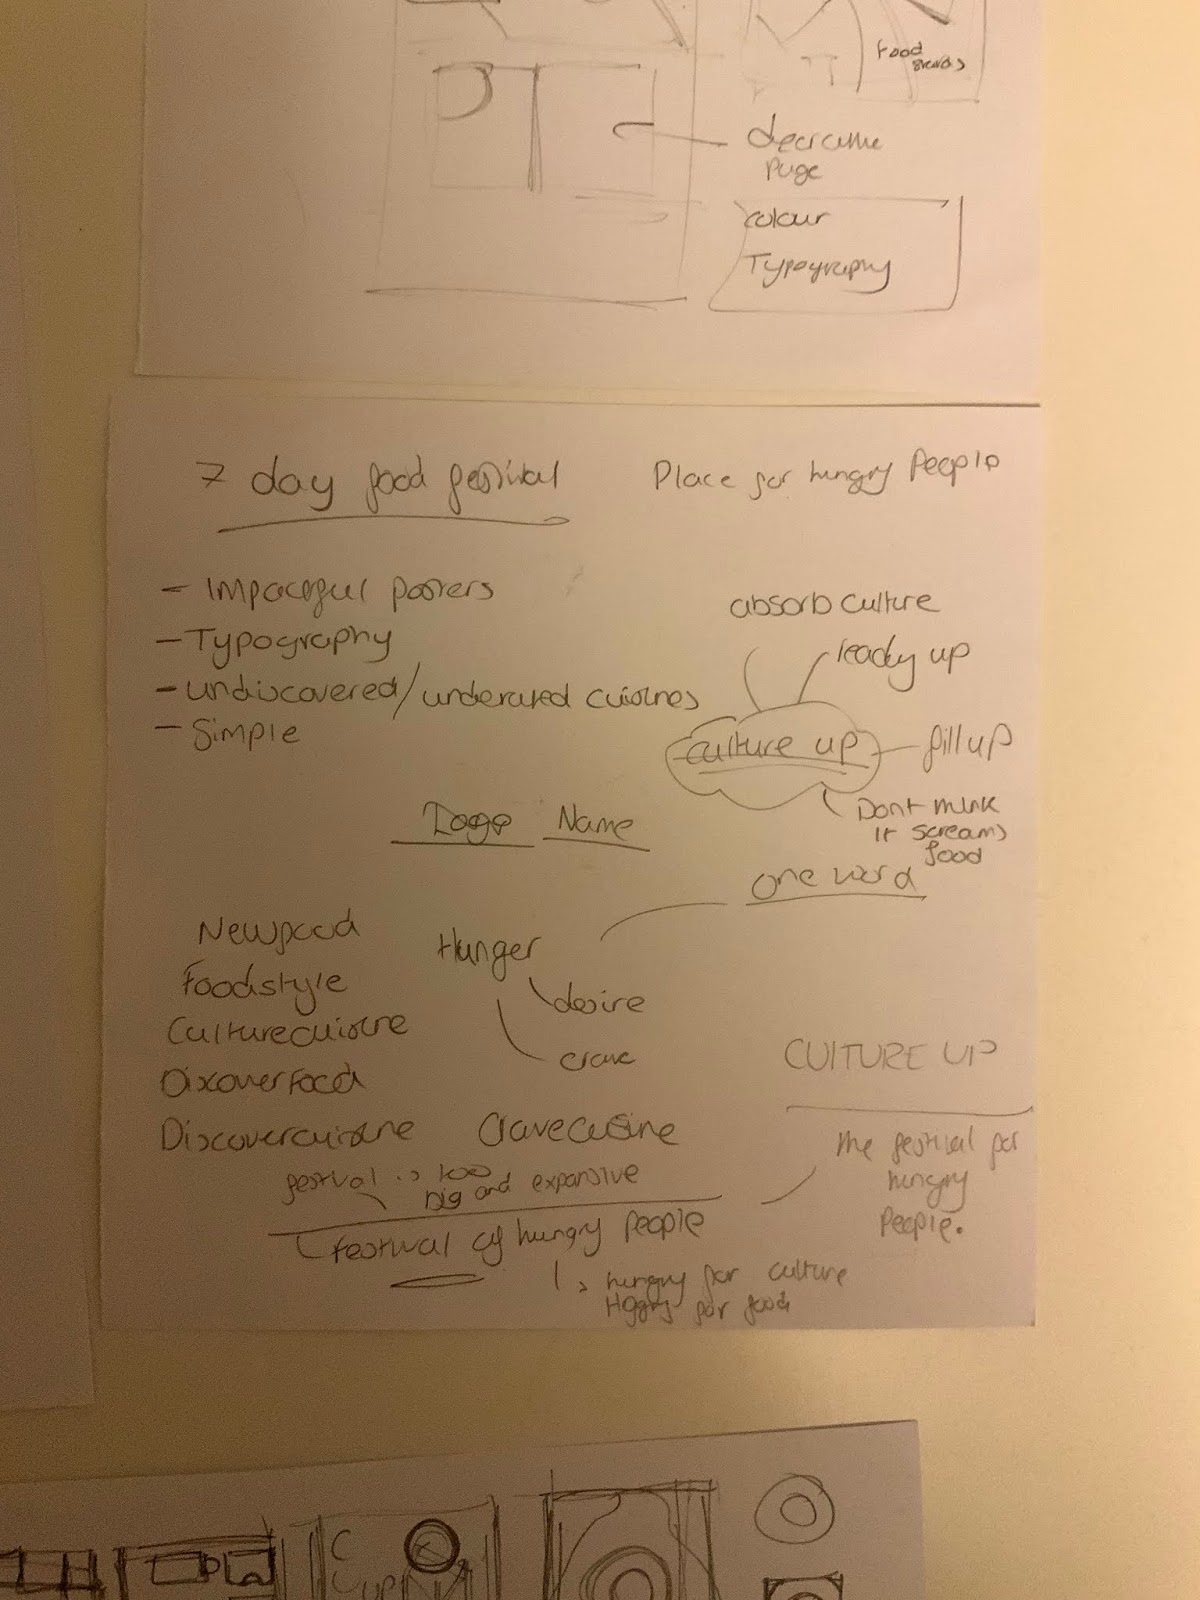 Food
stands
page
colour
Typography
7 day food festival
Place for hungry People
- Impactful posters
- Typography
- undiscovered/underrated cuisines
- Simple
absorb culture
ready up
culture up
fill up
Dont think
it screams
food
Logo Name
one word
Newfood
Foodstyle
Culturecuisine
Discoverfood
Discovercuisine
Hunger
desire
crave
Cravecusine
CUlTURE UP
the festival for
hungry
People.
festival too
big and expansive
festival of hungry people
hungry for culture
for food
C
C
UP